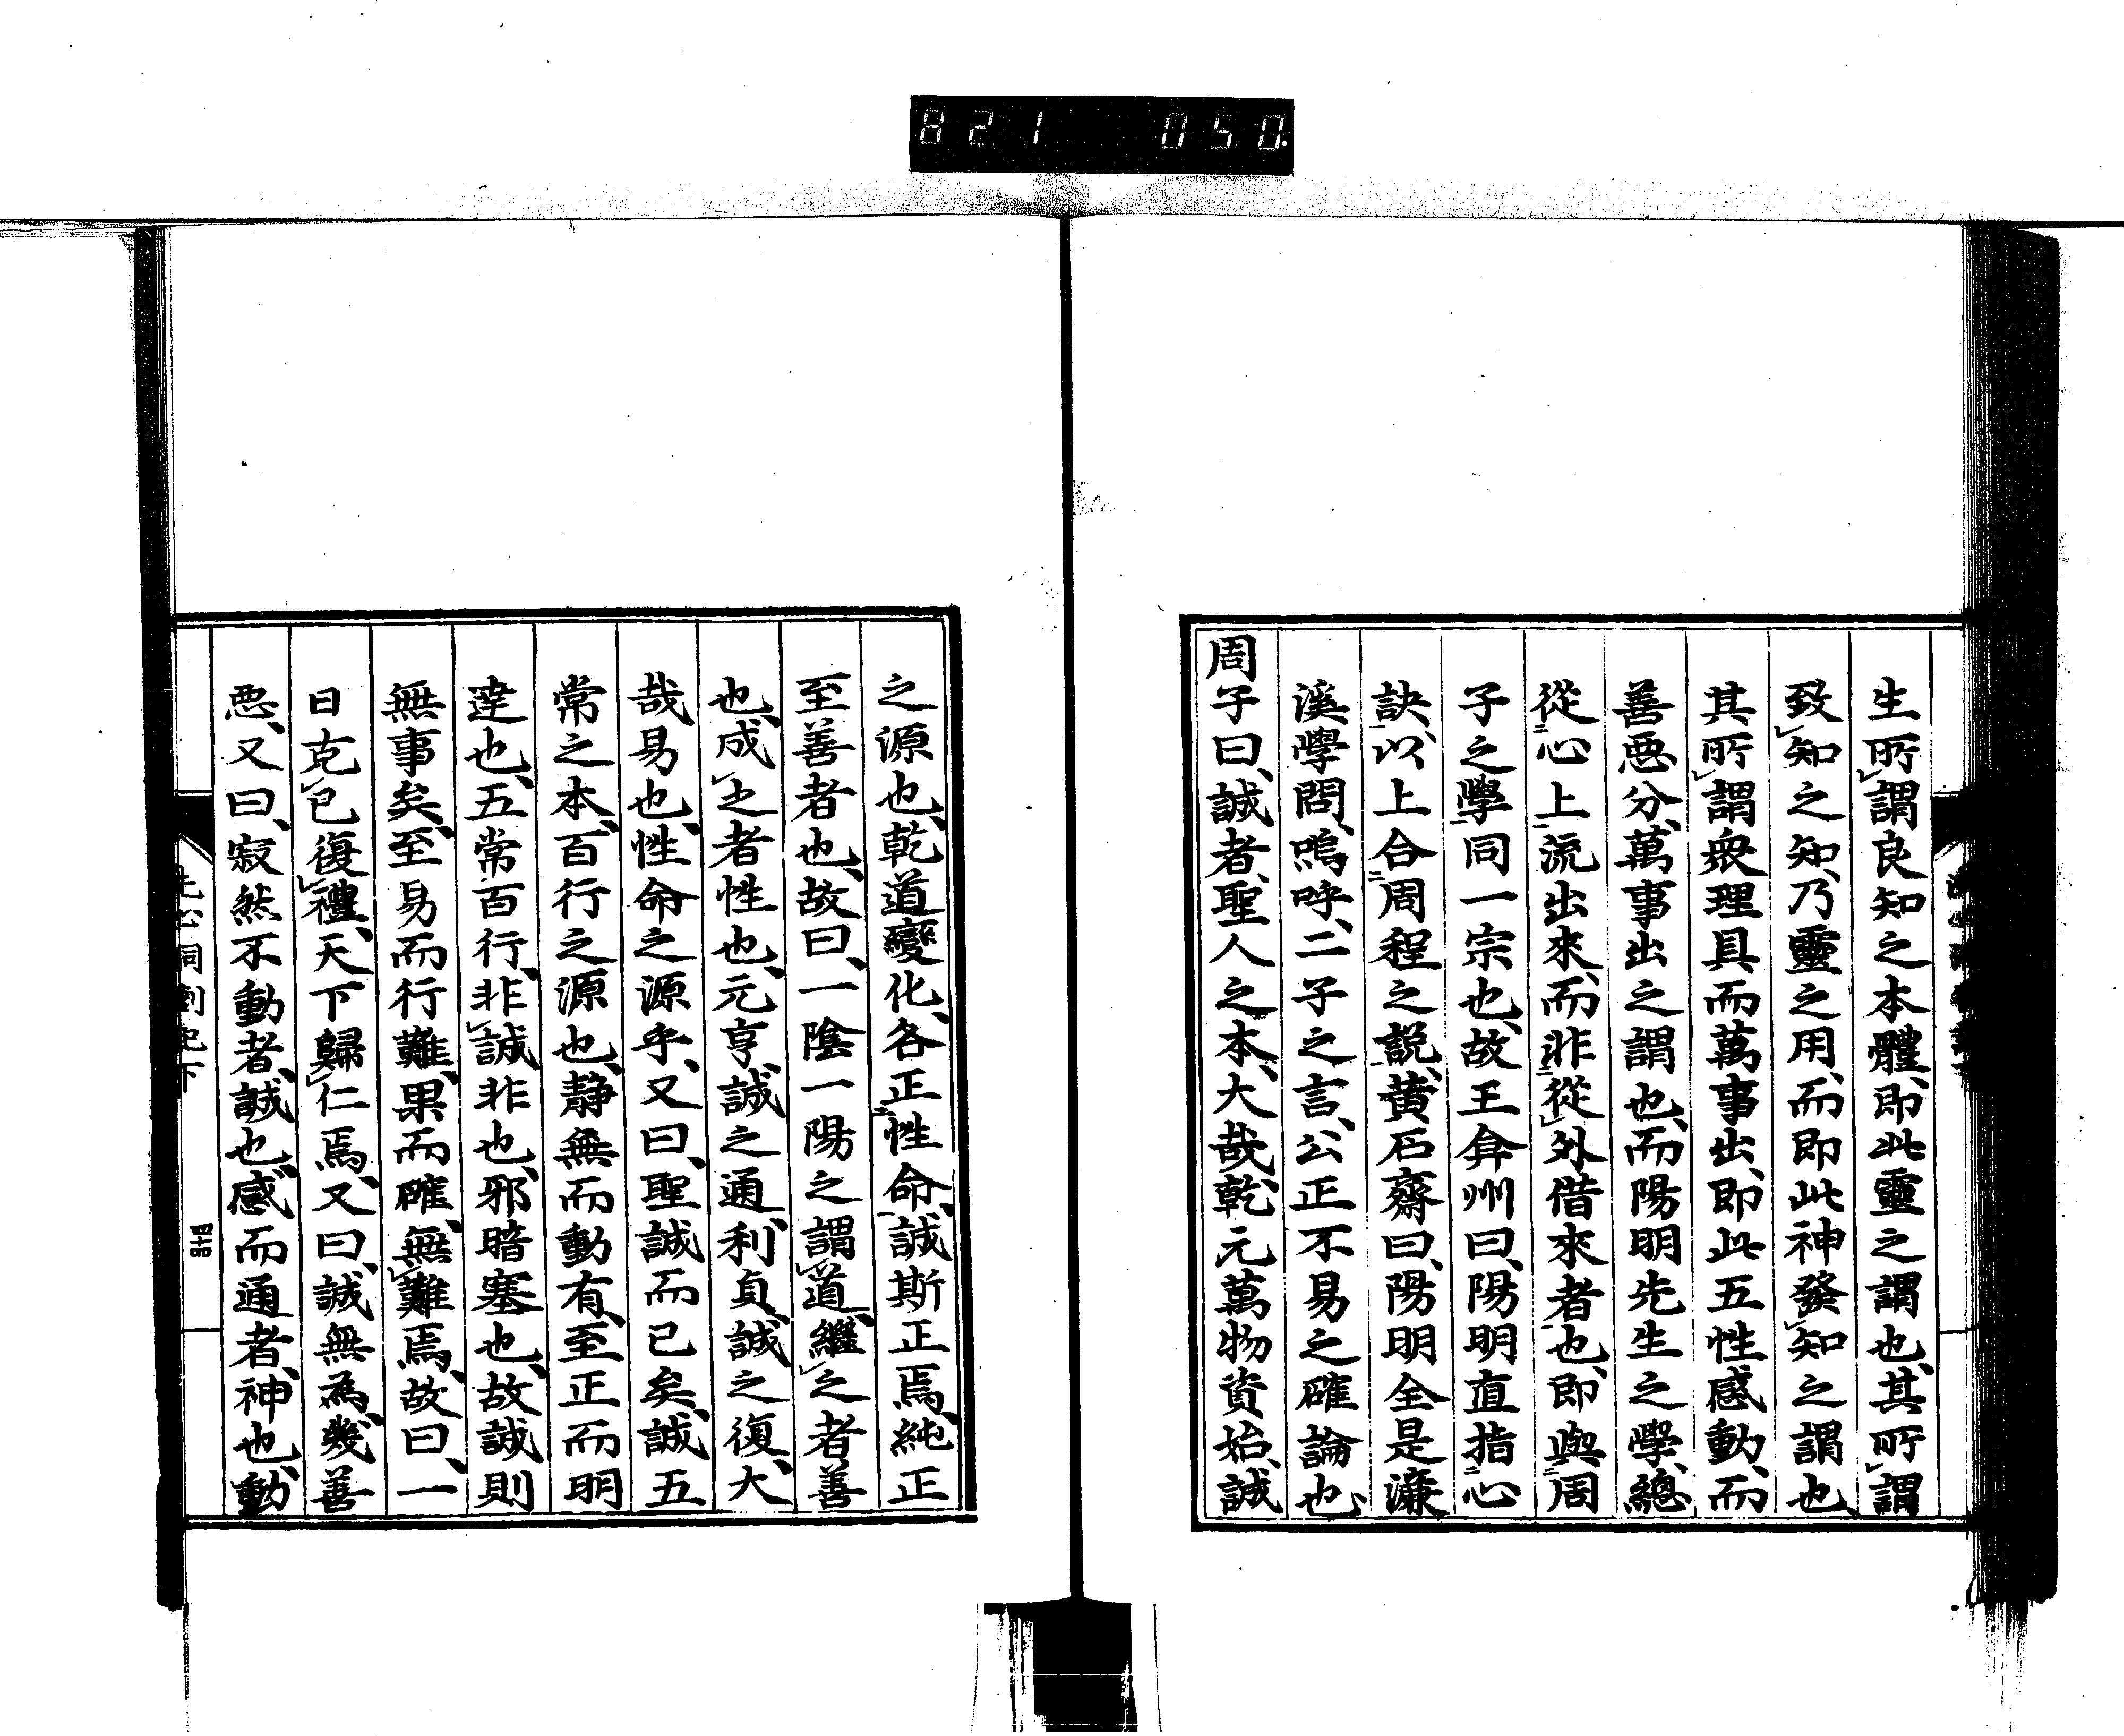 821 050
生所謂良知之本體、即此靈之謂也、其所謂
致知之知、乃靈之用、而即此神發知之謂也、
其所謂衆理具而萬事出、即此五性感動、而
善惡分、萬事出之謂也、而陽明先生之學、總
從心上流出來、而非從外借來者也、即與周
子之學同一宗也、故王弇州曰、陽明直指心
訣、以上合周程之說、黃石齋曰、陽明全是濂
溪學問、嗚呼、二子之言、公正不易之確論也、
周子曰、誠者、聖人之本、大哉乾元萬物資始、誠
之源也、乾道變化、各正性命、誠斯正焉、純正
至善者也、故曰、一陰一陽之謂道、繼之者善
也、成之者性也、元亨、誠之通、利貞、誠之復、大
哉易也、性命之源乎、又曰、聖誠而已矣、誠五
常之本、百行之源也、靜無而動有、至正而明
達也、五常百行、非誠非也、邪暗塞也、故誠則
無事矣、至易而行難、果而確、無難焉、故曰、一
日克己復禮、天下歸仁焉、又曰、誠無為、幾善
惡、又曰、寂然不動者、誠也、感而通者、神也、動
洞劄記下
四十四